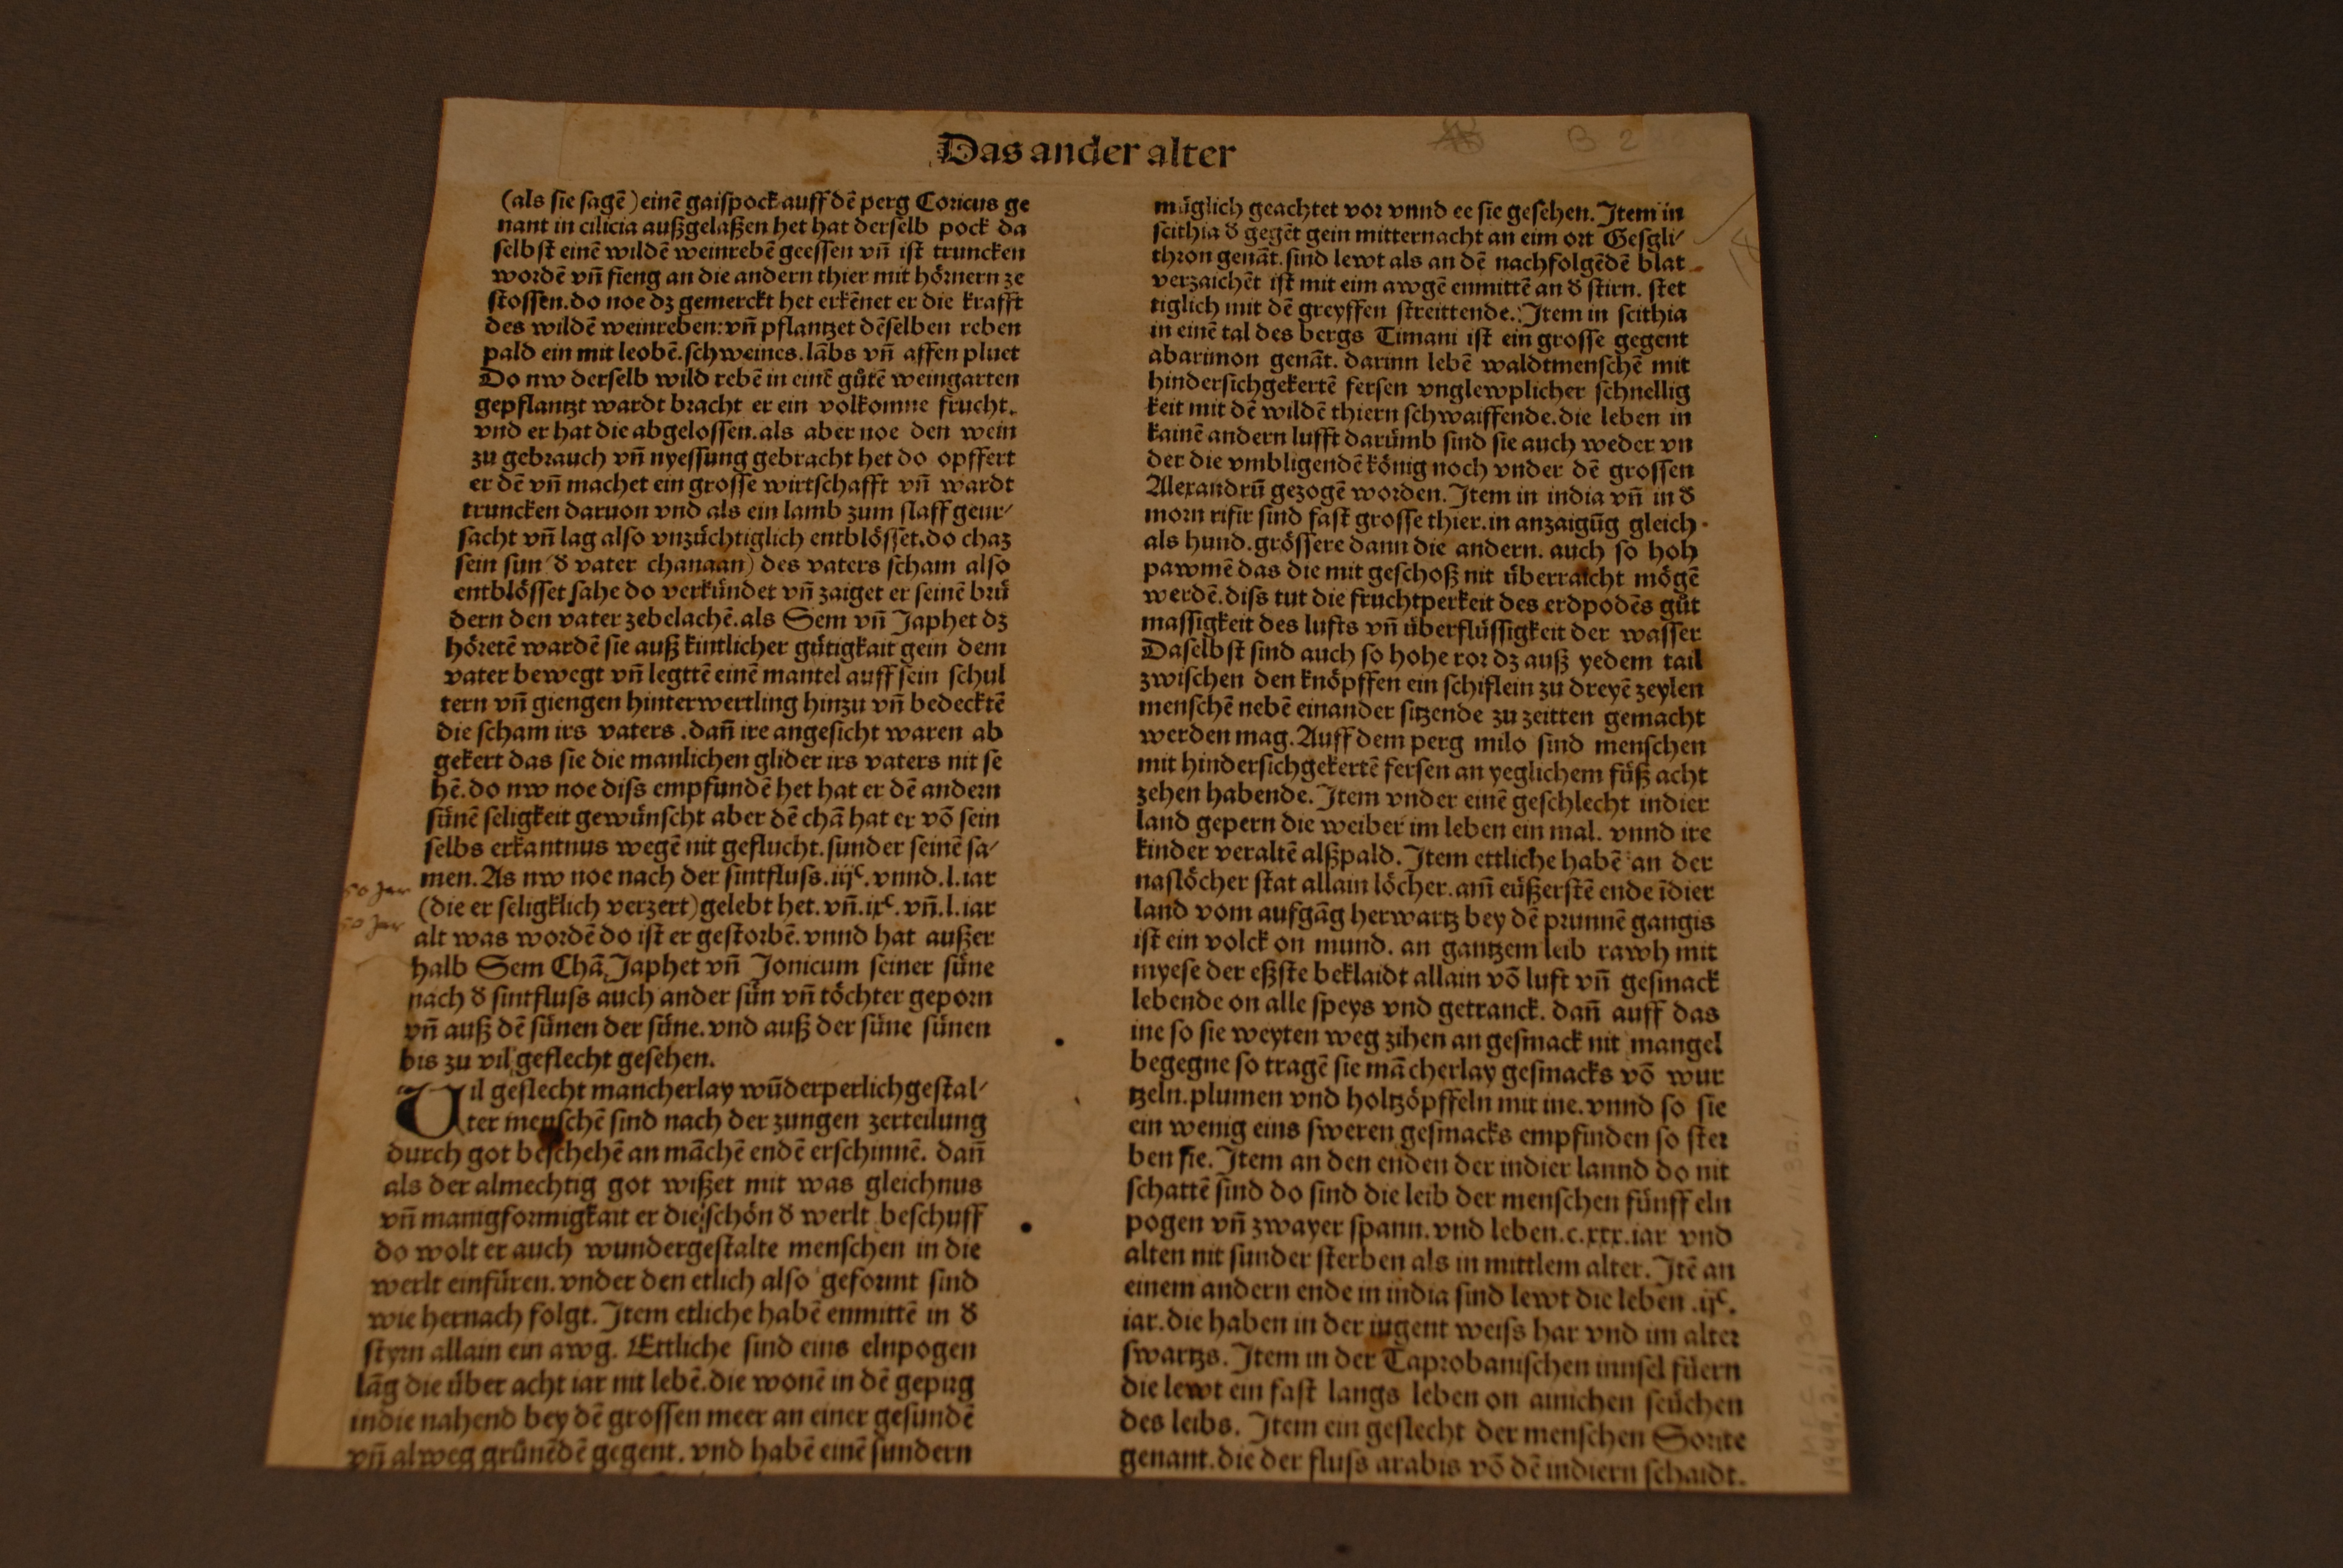 Das ander alter
B 2
(als sie sagē) einē gaispock auff dē perg Coricus ge
nant in cilicia außgelaßen het hat derselb pock da
selbst einē wildē weinrebē geessen vñ ist truncken
wordē vñ fieng an die andern thier mit hörnern ze
stossen. do noe dz gemerckt het erkēnet er die krafft
des wildē weinreben: vñ pflantzet dēselben reben
pald ein mit leobē. schweines. lābs vñ affen pluet
Do nw derselb wild rebē in einē gůtē weingarten
gepflantzt wardt bracht er ein volkomne frucht.
vnd er hat die abgelossen. als aber noe den wein
zu gebrauch vñ nyessung gebracht het do opffert
er dē vñ machet ein grosse wirtschafft vñ wardt
truncken daruon vnd als ein lamb zum slaff geur/
sacht vñ lag also vnzüchtiglich entblösset. do chaz
sein sun (đ vater chanaan) des vaters scham also
entblösset sahe do verkündet vñ zaiget er seinē brü
dern den vater zebelachē. als Sem vñ Japhet dz
höretē wardē sie auß kintlicher gütigkait gein dem
vater bewegt vñ legttē einē mantel auff sein schul
tern vñ giengen hinterwertling hinzu vñ bedecktē
die scham irs vaters. dañ ire angesicht waren ab
gekert das sie die manlichen glider irs vaters nit se
hē. do nw noe diss empfundē het hat er dē andern
sünē seligkeit gewünscht aber dē chā hat er vō sein
selbs erkantnus wegē nit geflucht. sunder seinē sa/
men. As nw noe nach der sintfluss. iijᶜ. vnnd. l. iar
(die er seligklich verzert) gelebt het. vñ. ixᶜ. vñ. l. iar
alt was wordē do ist er gestorbē. vnnd hat außer
halb Sem Chā Japhet vñ Jonicum seiner süne
nach đ sintfluss auch ander sün vñ töchter geporn
vñ auß dē sünen der süne. vnd auß der süne sünen
bis zu vil geslecht gesehen.
Vil geslecht mancherlay wūderperlich gestal/
ter menschē sind nach der zungen zerteilung
durch got beschehē an māchē endē erschinnē. dañ
als der almechtig got wißet mit was gleichnus
vñ manigformigkait er die schön đ werlt beschuff
do wolt er auch wundergestalte menschen in die
werlt einfüren. vnder den etlich also geformt sind
wie hernach folgt. Item etliche habē enmittē in đ
styrn allain ein awg. Ettliche sind eins elnpogen
lāg die über acht iar nit lebē. die wonē in dē gepirg
indie nahend bey dē grossen meer an einer gesundē
vñ alweg grünēdē gegent. vnd habē einē sundern
müglich geachtet vor vnnd ee sie gesehen. Item in
scithia đ gegēt gein mitternacht an eim ort Gesgli/
thron genāt. sind lewt als an dē nachfolgēdē blat
verzaichēt ist mit eim awgē enmittē an đ stirn. stet
tiglich mit dē greyffen streittende. Item in scithia
in einē tal des bergs Timani ist ein grosse gegent
abarimon genāt. darinn lebē waldtmenschē mit
hindersichgekertē fersen vnglewplicher schnellig
keit mit dē wildē thiern schwaiffende. die leben in
kainē andern lufft darümb sind sie auch weder vn
der die vmbligendē könig noch vnder dē grossen
Alexandrū gezogē worden. Item in india vñ in đ
morn rifir sind fast grosse thier. in anzaigūg gleich
als hund. grössere dann die andern. auch so hoh
pawmē das die mit geschoß nit überraicht mögē
werdē. diss tut die fruchtperkeit des erdpodēs gůt
massigkeit des lufts vñ überflüssigkeit der wasser
Daselbst sind auch so hohe ror dz auß yedem tail
zwischen den knöpffen ein schiflein zu dreyē zeylen
menschē nebē einander sitzende zu zeitten gemacht
werden mag. Auff dem perg milo sind menschen
mit hindersichgekertē fersen an yeglichem füß acht
zehen habende. Item vnder einē geschlecht indier
land gepern die weiber im leben ein mal. vnnd ire
kinder veraltē alßpald. Item ettliche habē an der
naslöcher stat allain löcher. am̄ eüßerstē ende īdier
land vom aufgāg herwartz bey dē prunnē gangis
ist ein volck on mund. an gantzem leib rawh mit
myese der eßste beklaidt allain vō luft vñ gesmack
lebende on alle speys vnd getranck. dañ auff das
ine so sie weyten weg zihen an gesmack nit mangel
begegne so tragē sie mācherlay gesmacks vō wur
tzeln. plumen vnd holtzöpffeln mit ine. vnnd so sie
ein wenig eins sweren gesmacks empfinden so ster
ben sie. Item an den enden der indier lannd do nit
schattē sind do sind die leib der menschen fünff eln
pogen vñ zwayer spann. vnd leben. c. xxx. iar vnd
alten nit sunder sterben als in mittlem alter. Itē an
einem andern ende in india sind lewt die leben .ijᶜ.
iar. die haben in der iugent weiss har vnd im alter
swartzs. Item in der Taprobanischen innsel füern
die lewt ein fast langs leben on ainichen seüchen
des leibs. Item ein geslecht der menschen Sorite
genant. die der fluss arabis vō dē indiern schaidt.
50 Jar
50 Jar